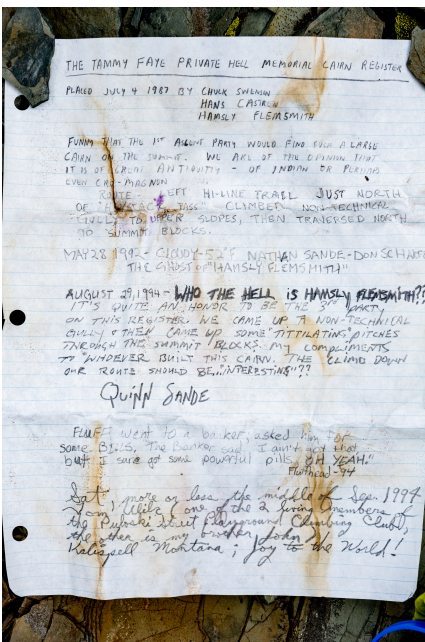 THE TAMMY FAYE PRIVATE HELL MEMORIAL CAIRN REGISTER
PLACED JULY 4 1987 BY CHUCK SWENSON
HANS CASTREN
HAMSLY FLEMSMITH
FUNNY THAT THE 1ST ASCENT PARTY WOULD FIND SUCH A LARGE
CAIRN ON THE SUMMIT. WE ARE OF THE OPINION THAT
IT IS OF GREAT ANTIQUITY - OF INDIAN OR PERHAPS
EVEN CRO-MAGNON
ROUTE - LEFT HI-LINE TRAIL JUST NORTH
OF "HAYSTACK PASS" CLIMBED NON-TECHNICAL
GULLY TO UPPER SLOPES, THEN TRAVERSED NORTH
TO SUMMIT BLOCKS.
MAY 28 1992 - CLOUDY - 52°F NATHAN SANDE - DON
THE GHOST OF "HAMSLY FLEMSMITH"
AUGUST 29, 1994 - WHO THE HELL IS HAMSLY FLEMSMITH??
IT'S QUITE AN HONOR TO BE THE 3RD PARTY
ON THIS REGISTER. WE CAME UP A NON-TECHNICAL
GULLY & THEN CAME UP SOME "TITILATING" PITCHES
THROUGH THE SUMMIT BLOCKS. MY COMPLIMENTS
TO WHOEVER BUILT THIS CAIRN. THE CLIMB DOWN
OUR ROUTE SHOULD BE "INTERESTING"??
QUINN SANDE
FLUFF went to a banker, asked him for
some BILLS, The Banker said, I ain't got that
but I sure got some powerful pills, OH YEAH."
Fluthead - 94
Sat, more or less, the middle of Sep. 1994
Tom Ulik, one of the 2 living members of
the Pulaski Street Playground Climbing Club,
the other is my brother John,
Kalispell Montana; Joy to the World!